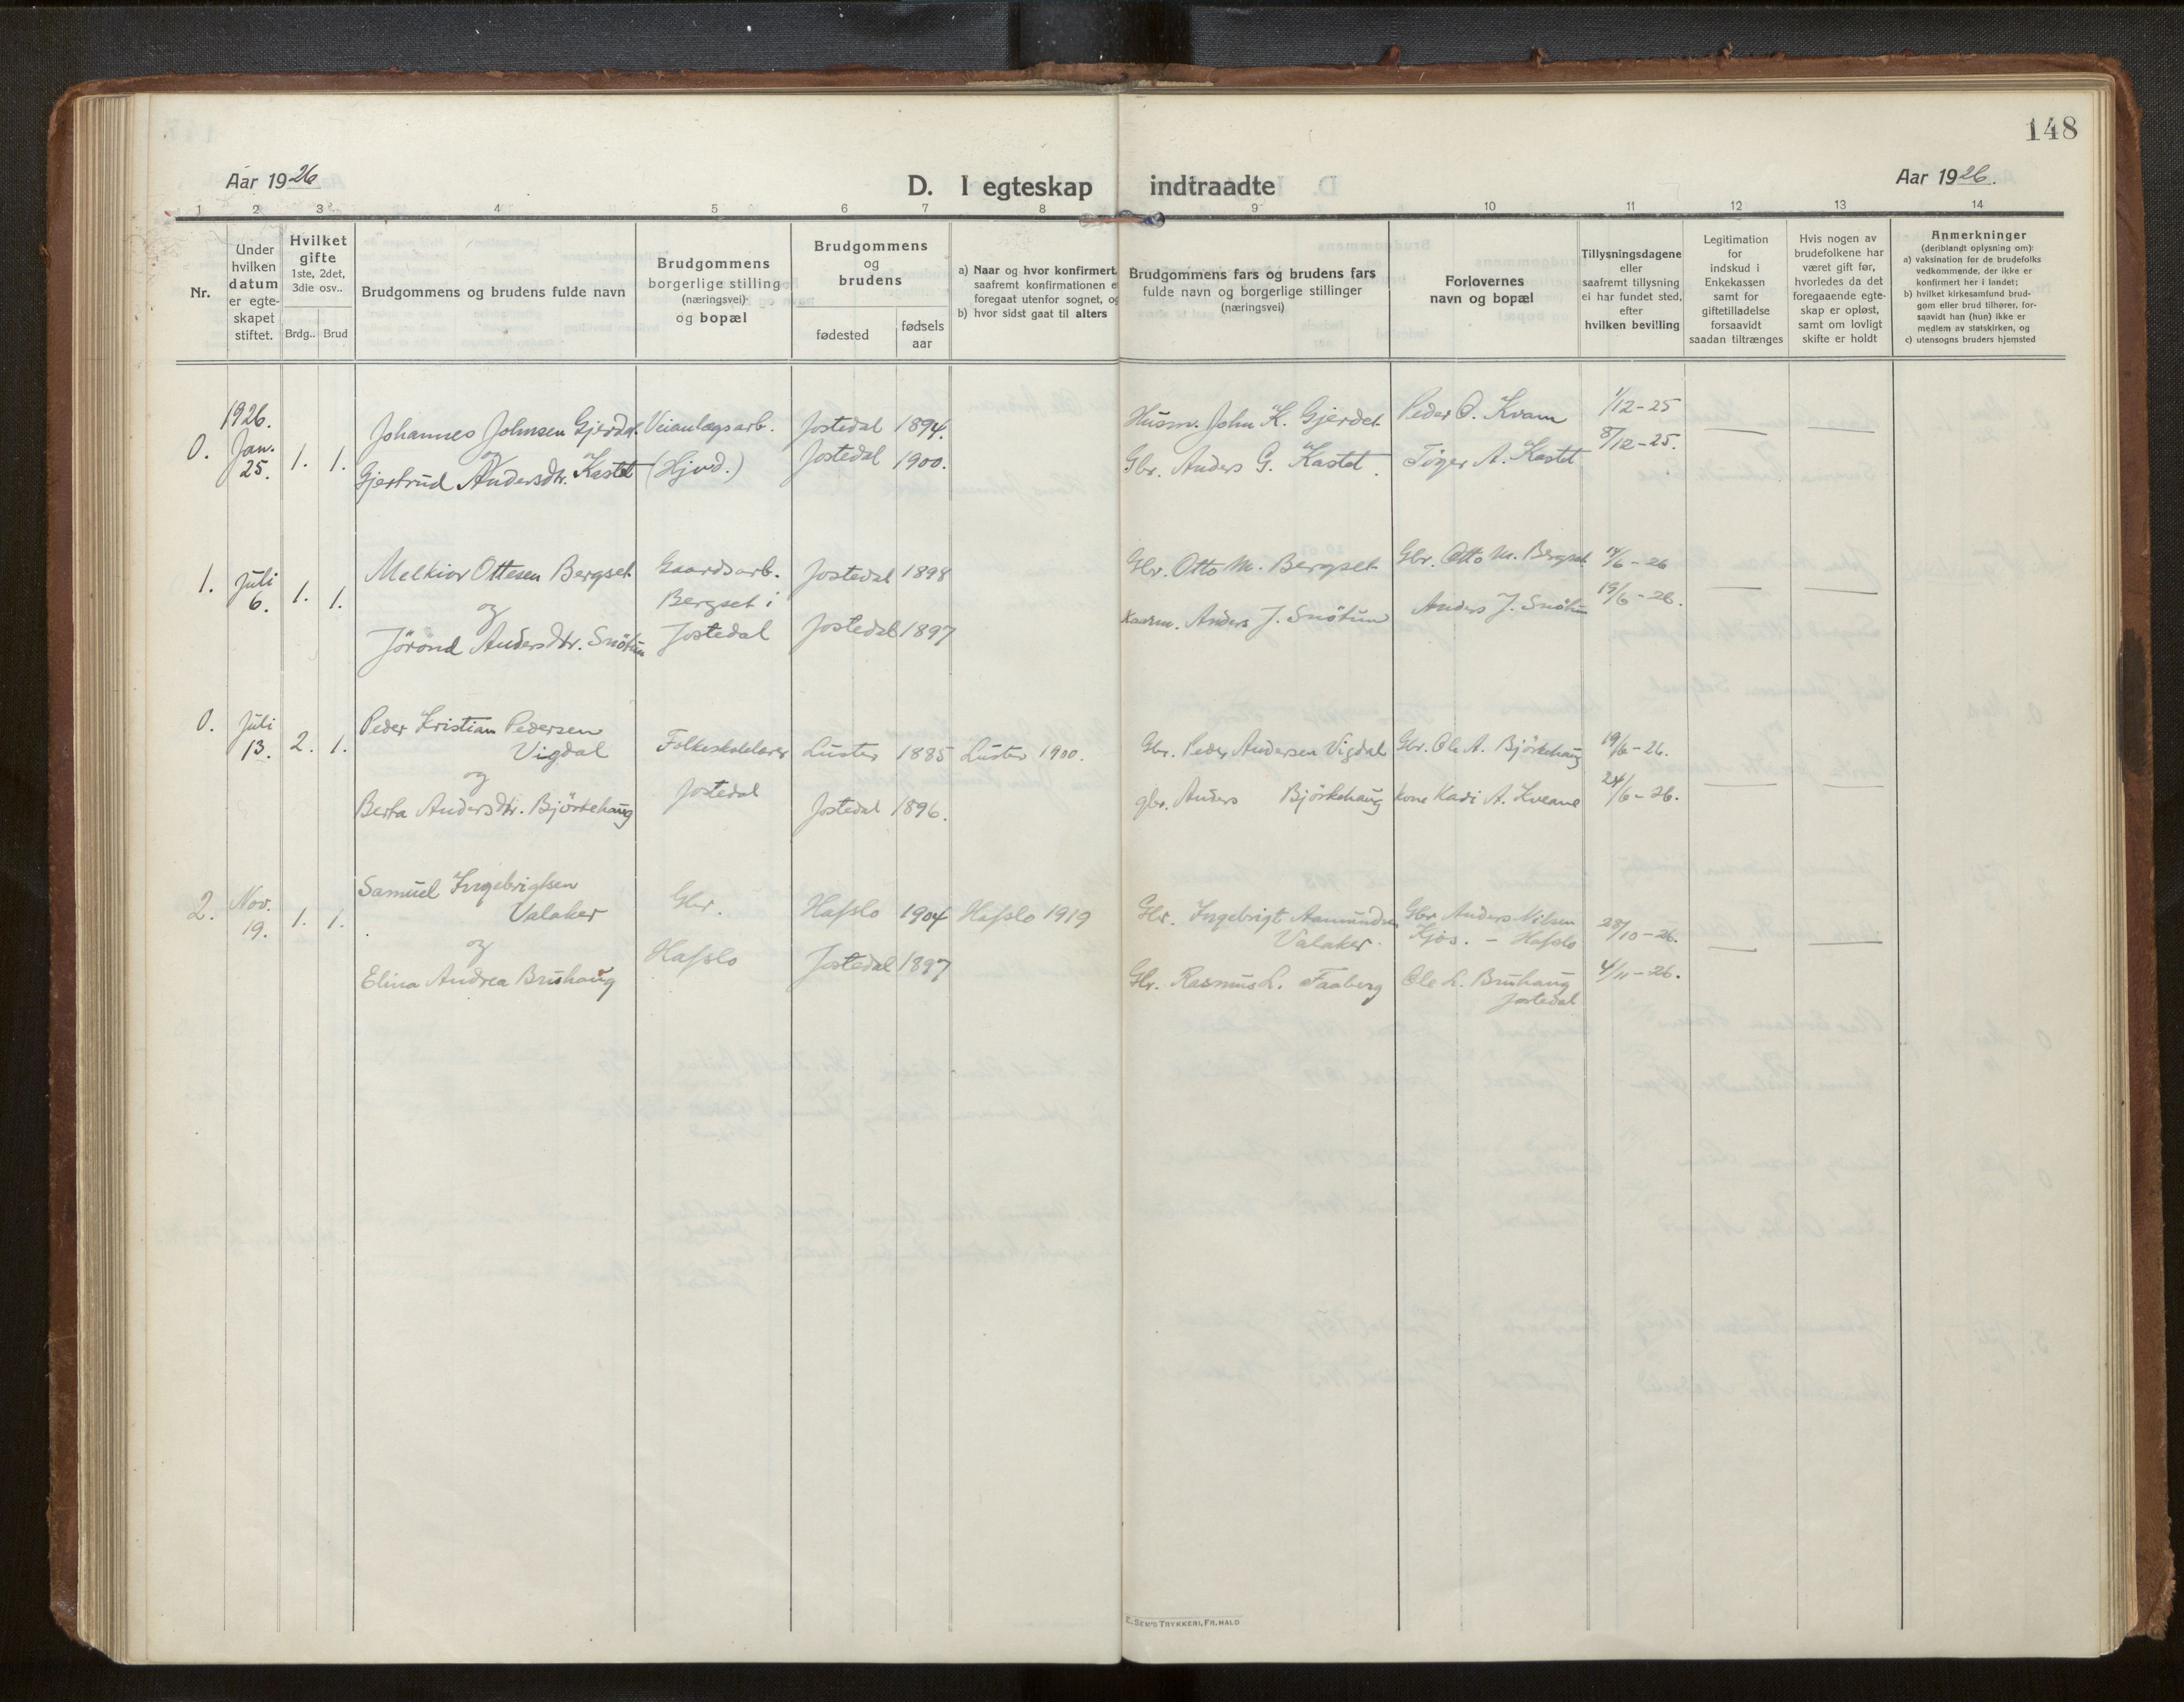 148
Aar 1926
D. I egteskap indtraadte
Aar 1926.
1 2 3 4 5 6 7 8 9 10 11 12 13 14
Nr.
Under
hvilken
datum
er egte-
skapet
stiftet.
Hvilket
gifte
1ste, 2det,
3die osv..
Brdg.. Brud
Brudgommens og brudens fulde navn
Brudgommens
borgerlige stilling
(næringsvei)
og bopæl
Brudgommens
og
brudens
fødested
fødsels
aar
a) Naar og hvor konfirmert,
saafremt konfirmationen e
foregaat utenfor sognet, og
b) hvor sidst gaat til alters
Brudgommens fars og brudens fars
fulde navn og borgerlige stillinger
(næringsvei)
Forlovernes
navn og bopæl
Tillysningsdagene
eller
saafremt tillysning
ei har fundet sted,
efter
hvilken bevilling
Legitimation
for
indskud i
Enkekassen
samt for
giftetilladelse
forsaavidt
saadan tiltrænges
Hvis nogen av
brudefolkene har
været gift før,
hvorledes da det
foregaaende egte-
skap er opløst,
samt om lovligt
skifte er holdt
Anmerkninger
(deriblandt oplysning om):
a) vaksination før de brudefolks
vedkommende, der ikke er
konfirmert her i landet;
b) hvilket kirkesamfund brud-
gom eller brud tilhører, for-
saavidt han (hun) ikke er
medlem av statskirken, og
c) utensogns bruders hjemsted
1926.
0. Jan. 25. 1. 1.
Johannes Johnsen Gjerdet. Veianlægsarb. Jostedal 1894. Husm. John K. Gjerdet Peder O. Kvam 1/12-25
og
Gjertrud Andersdtr. Kastet (Hjvd.) Jostedal 1900. Gbr. Anders G. Kastet. Töger A. Kastet 8/12-25.
1. Juli 6. 1. 1.
Melkior Ottesen Bergset Gaardsarb. Jostedal 1898 Gbr. Otto M. Bergset Gbr. Otto M. Bergset 14/6-26
og Bergset i
Jörond Andersdtr. Snötun Jostedal Jostedal 1897 Kaarm. Anders J. Snötun Anders J. Snötun 19/6-26.
0. Juli 13. 2. 1.
Peder Kristian Pedersen
Vigdal Folkeskolelærer Luster 1885 Luster 1900. Gbr. Peder Andersen Vigdal Gbr. Ole A. Björkehaug 19/6-26.
og Jostedal
Berta Andersdtr. Björkehaug Jostedal 1896. gbr. Anders Björkehaug kone Kadi A. Kveane 24/6-26.
2. Nov. 19. 1. 1.
Samuel Ingebrigtsen
Valaker Gbr. Hafslo 1904 Hafslo 1919 Gbr. Ingebrigt Aamundsen Gbr. Anders Nilsen
Valaker. Kjos. - Hafslo 28/10-26.
og Hafslo
Elina Andrea Bruhaug Jostedal 1897 Gbr. Rasmus L. Faaberg Ole L. Bruhaug 4/11-26.
Jostedal
E. SEM'S TRYKKERI, FR.HALD